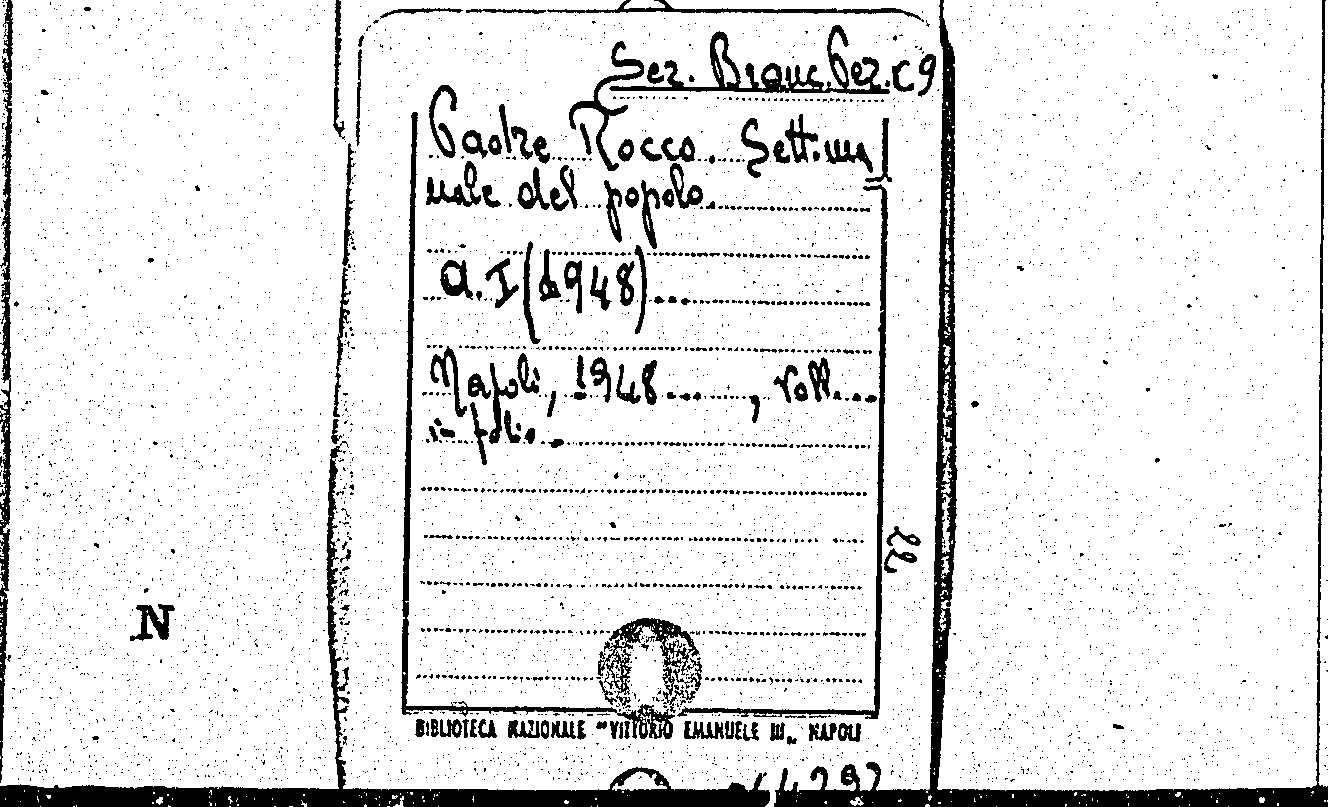 Sez. Branc. Per. C 9
Padre Rocco. Settima
nale del popolo.
a. I (1948)...
Napoli, 1948... , voll...
in folio.
22
N
BIBLIOTECA NAZIONALE "VITTORIO EMANUELE III„ NAPOLI